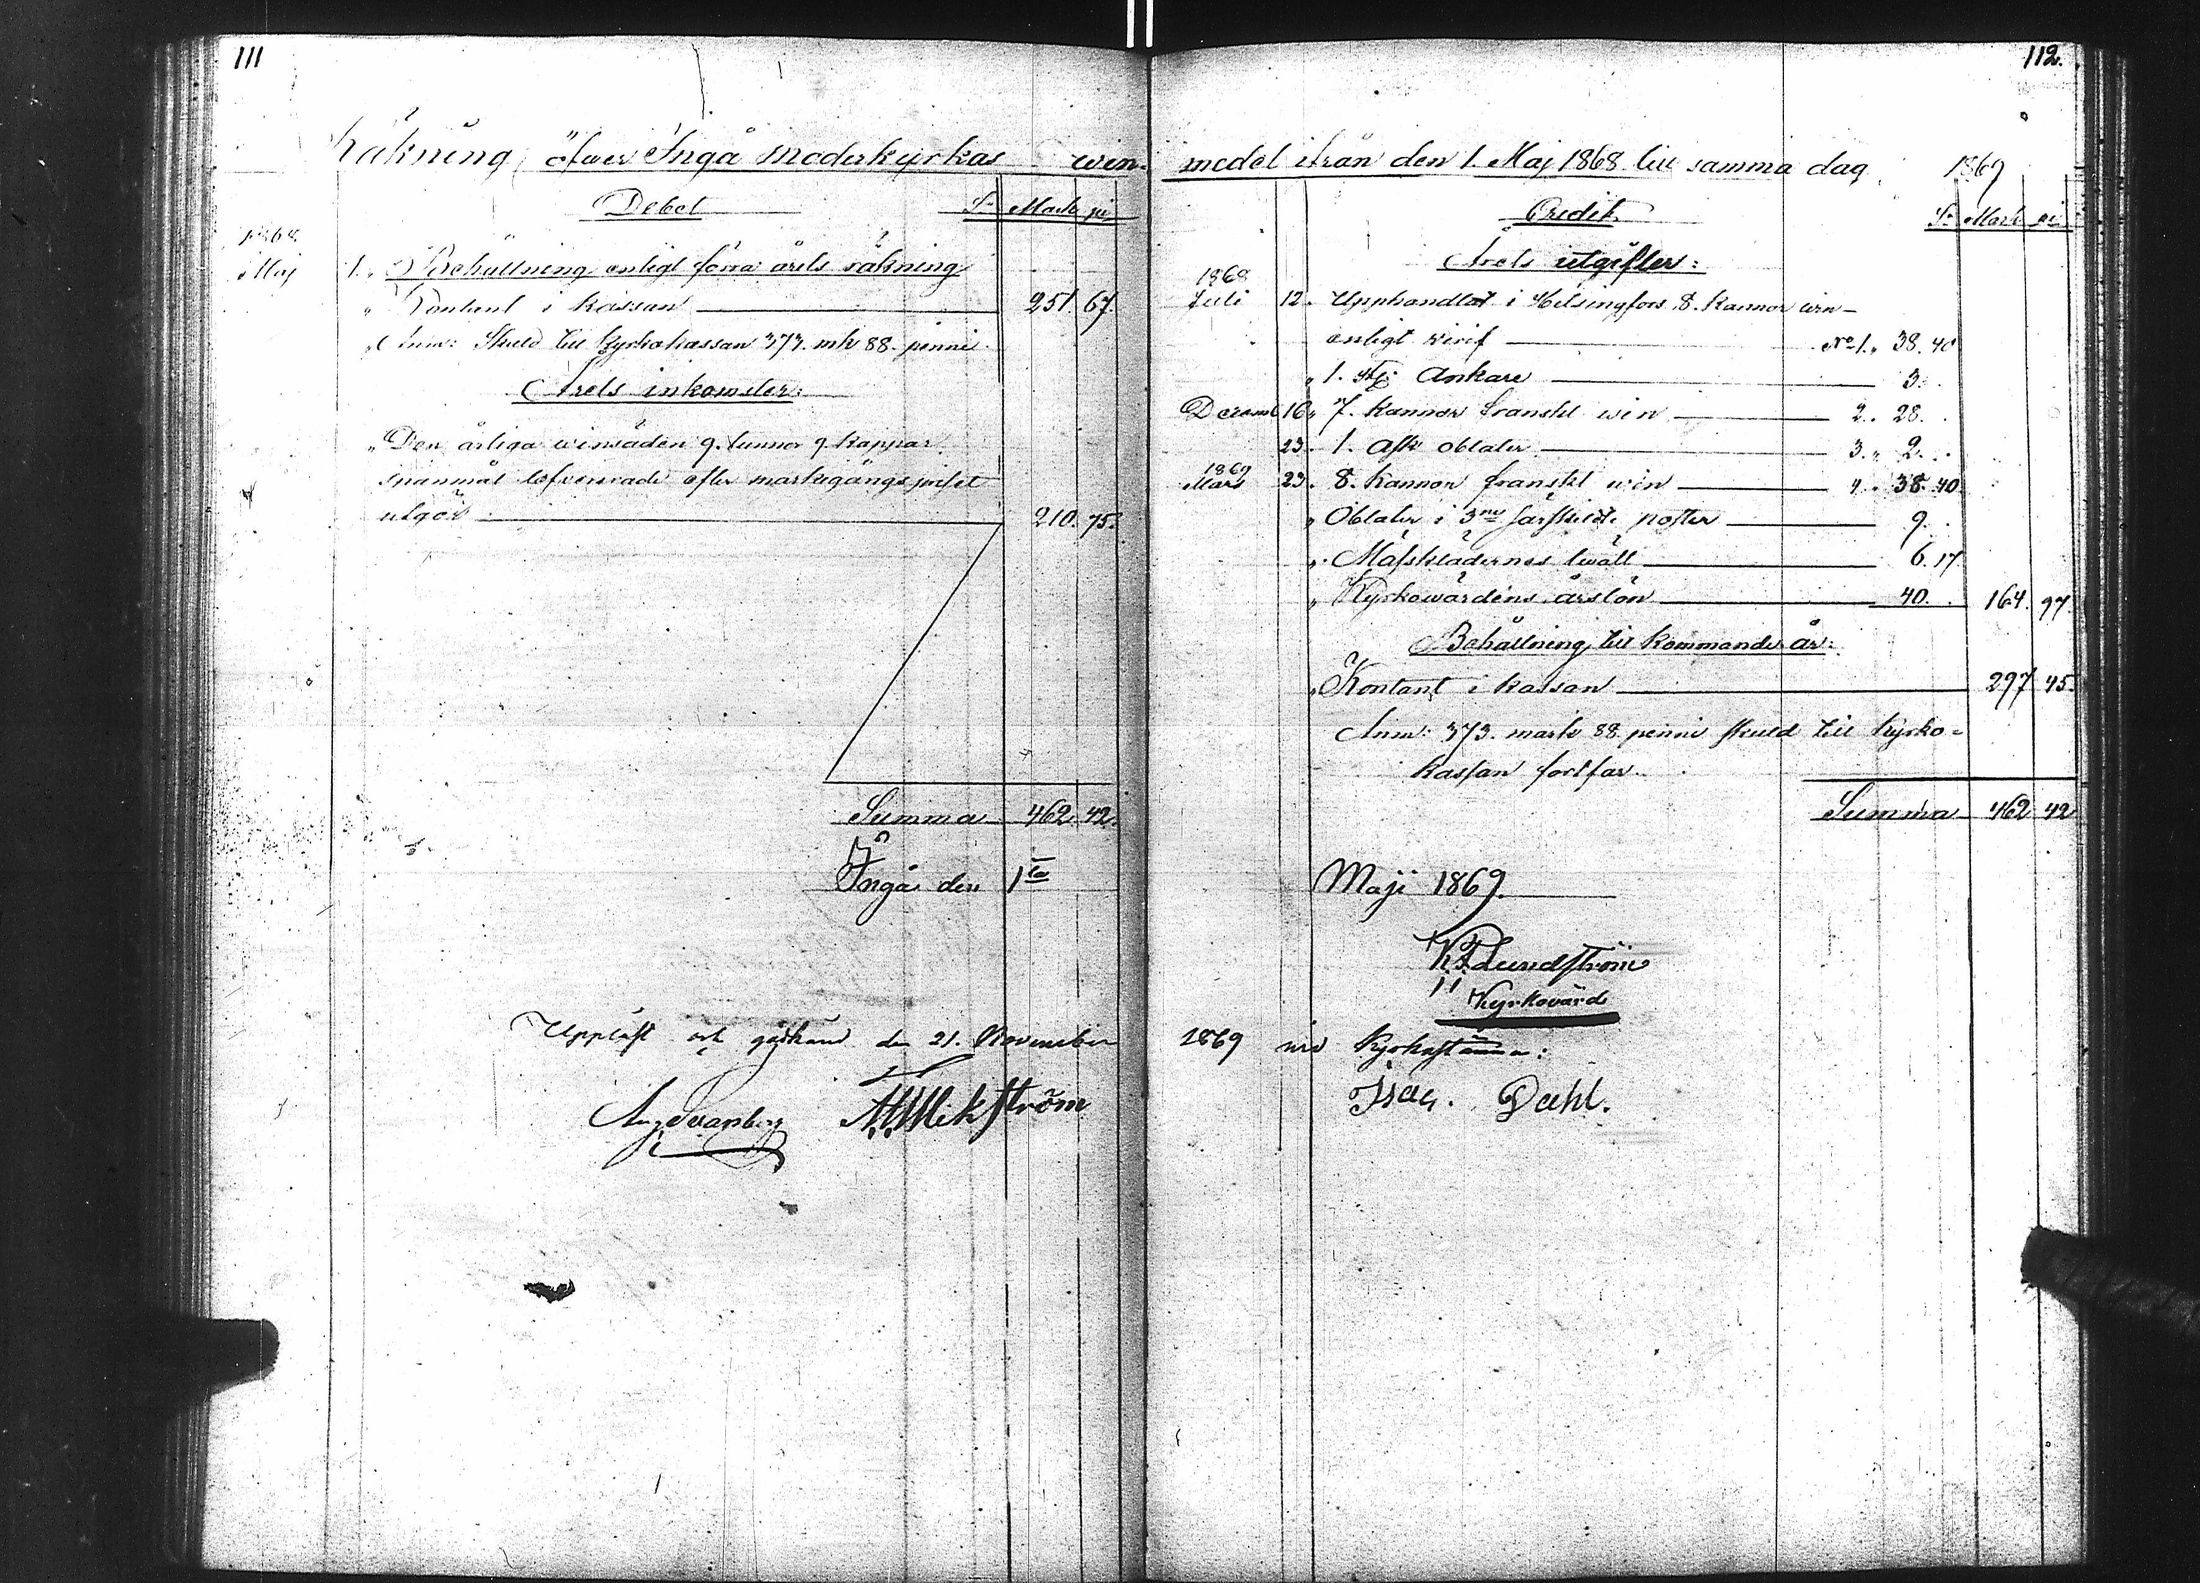 111
Räkning öfwer Ingå moderkyrkas win-
Debet Sr Mark pi
1868
Maj 1. Behållning enligt förra årets räkning
" Kontant i kassan 251. 67.
" Anm: Skuld till kyrkokassan 373. mk 88. penni.
Årets inkomster:
" Den årliga winsäden 9. tunnor 9 kappar
spanmål lefvererade efter markegångs priset
utgör 210. 75.
Summa 462. 42.
Ingå den 1sta
Uppläst och godkänd den 21. November
Aug Svansberg A. W. Wikström
112.
medel ifrån den 1. Maj 1868 till samma dag 1869
Credit Sr Mark pi
Årets utgifter:
1868
Juli 12. Upphandlat i Helsingfors 8. kannor win
enligt verif No 1. 38. 40
" 1. st. Ankare 3.
Decemb 16. 7. kannor franskt win 2. 28.
23. 1. Ask oblater 3. 2.
1869
Mars 23. 8. kannor franskt win 4. 38. 40.
" Oblater i 3ne särskilde poster 9.
" Mässklädernes twätt 6. 17.
" Kyrkowärdens årslön 40. 164. 97.
Behållning till kommande år:
" Kontant i kassan 297. 45.
Anm: 373. mark 88. penni skuld till kyrko-
kassan fortfar.
Summa 462 42
Maji 1869.
K F Lundström
Kyrkovärd
1869 vid Kyrkostämma:
Isac. Dahl.